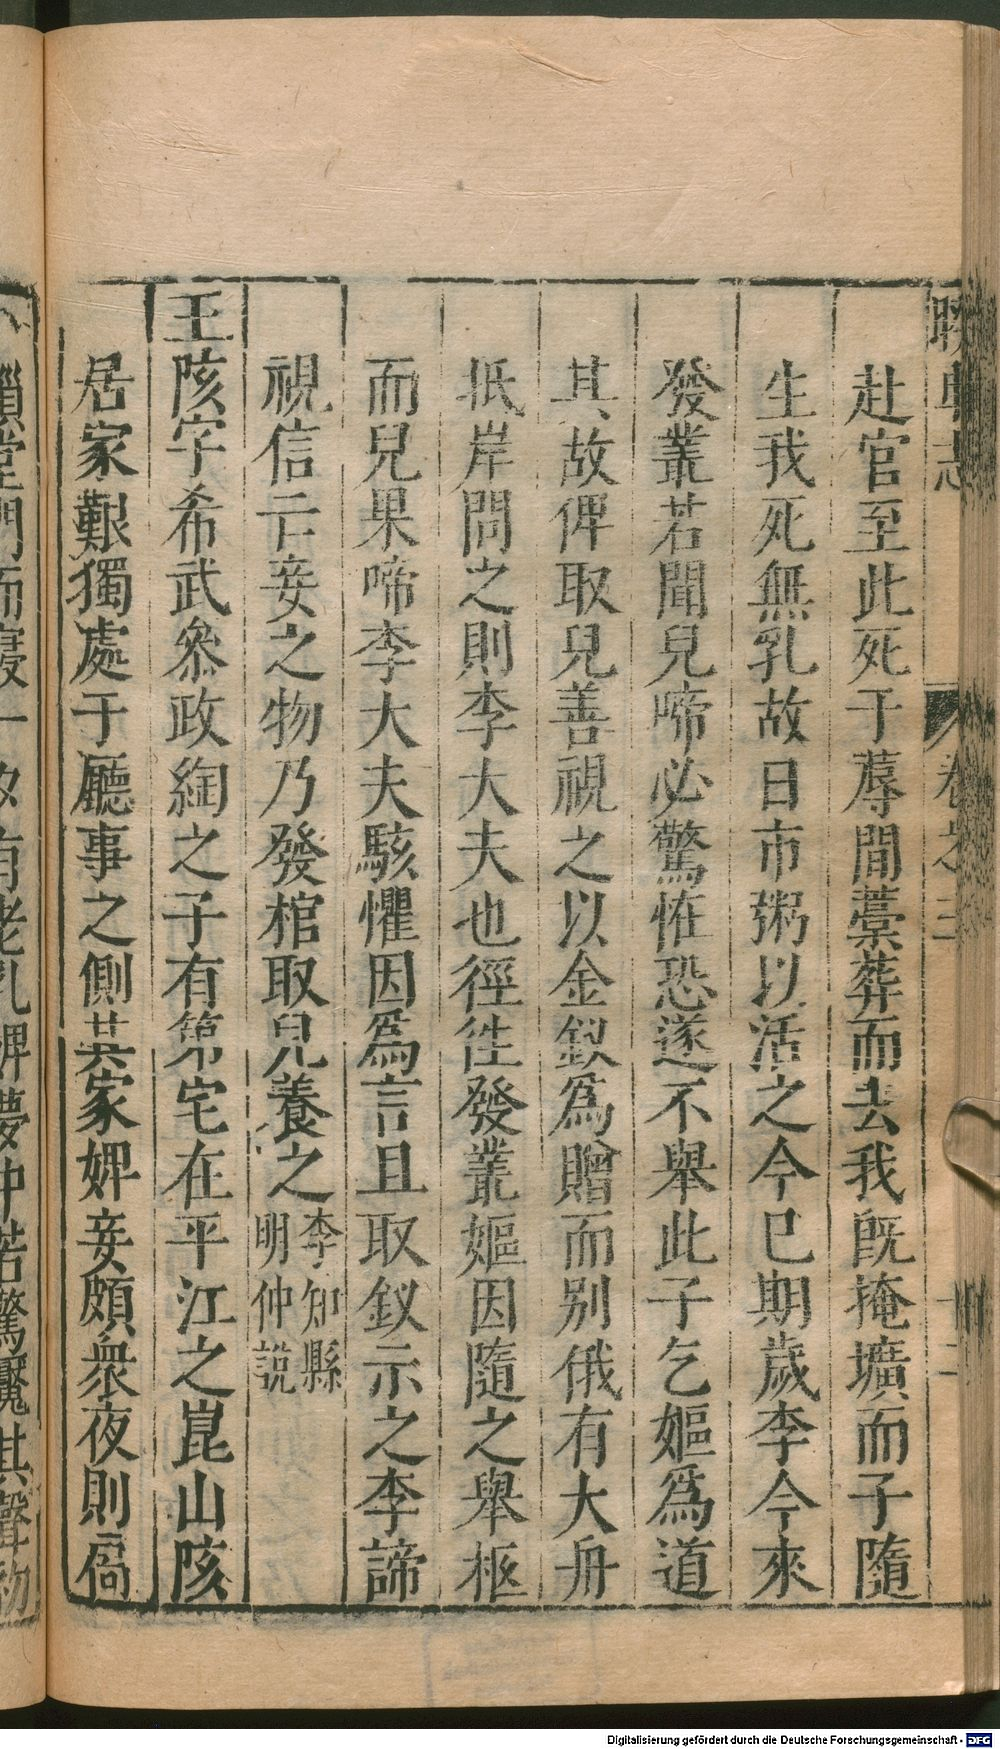 赴官至此死于蓐間藁葬而去我旣掩壙而子隨
生我死無乳故日市粥以活之今巳期歲李今來
發叢若聞兒啼必驚恠恐遂不舉此子乞嫗爲道
其故俾取兒善視之以金釵爲贈而别俄有大舟
抵岸問之則李大夫也徑徃發叢嫗因隨之舉柩
而兒果啼李大夫駭懼因爲言且取釵示之李諦
視信云妾之物乃發棺取兒養之李知縣
明仲說
王陔字希武叅政綯之子有第宅在平江之崑山陔
居家艱獨處于廳事之側其家婢妾頗衆夜則扃
卷之三
十二
Digitalisierung gefördert durch die Deutsche Forschungsgemeinschaft - DFG